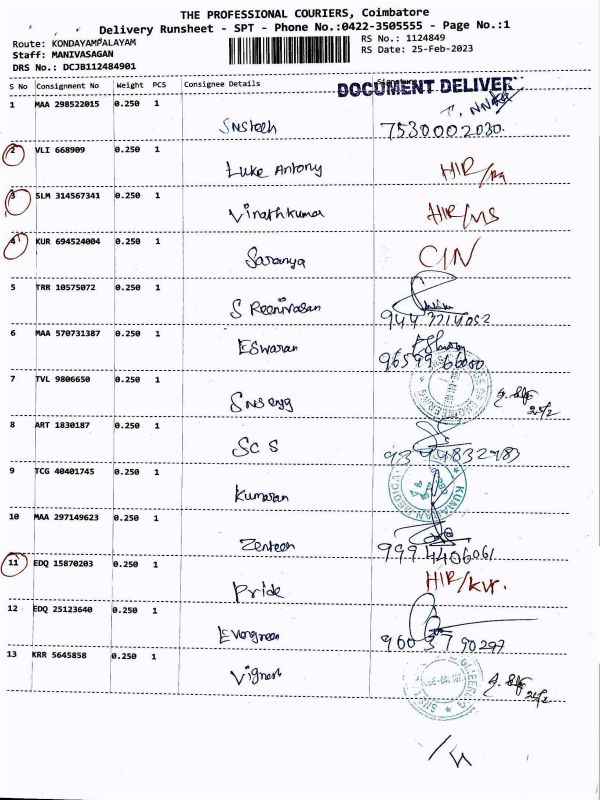 THE PROFESSIONAL COURIERS, Coimbatore
Delivery Runsheet - SPT - Phone No.:0422-3505555 - Page No.:1
Route: KONDAYAMPALAYAM
RS No.: 1124849
Staff: MANIVASAGAN
RS Date: 25-Feb-2023
DRS No.: DCJB112484901
S No Consignment No Weight PCS Consignee Details Signature
DOCUMENT DELIVER
1 MAA 298522015 0.250 1
Snstech 7530002030.
2 VLI 668909 0.250 1
Luke Antony HIR/
3 SLM 314567341 0.250 1
Vinothkumar HIR/MS
4 KUR 694524004 0.250 1
Saranya CIN
5 TRR 10575072 0.250 1
S Reenivasan
6 MAA 570731387 0.250 1
Eswaran 96599 66000
7 TVL 9806650 0.250 1
Sns engg 25/2
8 ART 1830187 0.250 1
SC S
9 TCG 40401745 0.250 1
Kumaran
10 MAA 297149623 0.250 1
Zenteen 9994406061
11 EDQ 15870203 0.250 1
Pride HIR/KVR.
12 EDQ 25123640 0.250 1
Evergreen 96037 90297
13 KRR 5645858 0.250 1
Vignesh 25/2